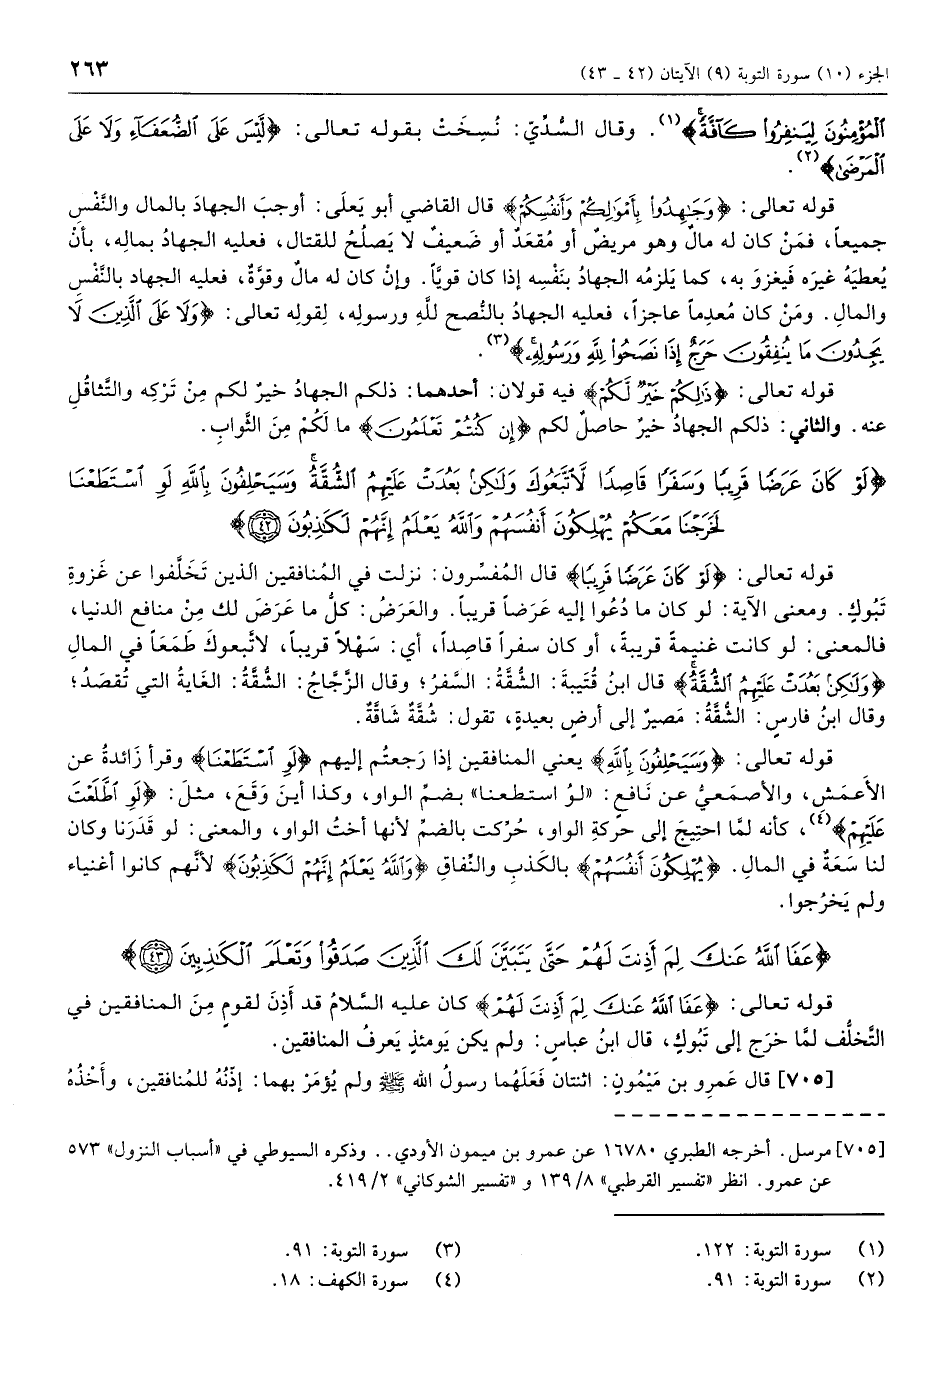 الجزء (١٠) سورة التوبة (٩) الآيتان (٤٢ ـ ٤٣)
٢٦٣
الْمُؤْمِنُونَ لِيَنفِرُوا كَافَّةً﴾(١). وقال السُّدِّيّ: نُسِخَتْ بقوله تعالى: ﴿لَّيْسَ عَلَى الضُّعَفَاءِ وَلَا عَلَى
الْمَرْضَىٰ﴾(٢).
قوله تعالى: ﴿وَجَاهِدُوا بِأَمْوَالِكُمْ وَأَنفُسِكُمْ﴾ قال القاضي أبو يَعلَى: أوجبَ الجهادَ بالمال والنَّفْسِ
جميعاً، فمَنْ كان له مالٌ وهو مريضٌ أو مُقعَدٌ أو ضَعيفٌ لا يَصلُحُ للقتال، فعليه الجهادُ بمالِه، بأنْ
يُعطيَهُ غيرَه فيَغزوَ به، كما يَلزمُه الجهادُ بنَفْسِه إذا كان قوياً. وإنْ كان له مالٌ وقوَّةٌ، فعليه الجهاد بالنَّفْسِ
والمالِ. ومَنْ كان مُعدِماً عاجزاً، فعليه الجهادُ بالنُّصح للَّهِ ورسولِه، لِقولِه تعالى: ﴿وَلَا عَلَى الَّذِينَ لَا
يَجِدُونَ مَا يُنفِقُونَ حَرَجٌ إِذَا نَصَحُوا لِلَّهِ وَرَسُولِهِ﴾(٣).
قوله تعالى: ﴿ذَٰلِكُمْ خَيْرٌ لَّكُمْ﴾ فيه قولان: أحدهما: ذلكم الجهادُ خيرٌ لكم مِنْ تَرْكِه والتَّثاقُلِ
عنه. والثاني: ذلكم الجهادُ خيرٌ حاصلٌ لكم ﴿إِن كُنتُمْ تَعْلَمُونَ﴾ ما لَكُمْ مِنَ الثَّوابِ.
﴿لَوْ كَانَ عَرَضًا قَرِيبًا وَسَفَرًا قَاصِدًا لَّاتَّبَعُوكَ وَلَٰكِن بَعُدَتْ عَلَيْهِمُ الشُّقَّةُ وَسَيَحْلِفُونَ بِاللَّهِ لَوِ اسْتَطَعْنَا
لَخَرَجْنَا مَعَكُمْ يُهْلِكُونَ أَنفُسَهُمْ وَاللَّهُ يَعْلَمُ إِنَّهُمْ لَكَاذِبُونَ ٤٢﴾
قوله تعالى: ﴿لَوْ كَانَ عَرَضًا قَرِيبًا﴾ قال المُفسِّرون: نزلت في المُنافقين الذين تَخَلَّفوا عن غَزوةِ
تَبُوكٍ. ومعنى الآية: لو كان ما دُعُوا إليه عَرَضاً قريباً. والعَرَضُ: كلُّ ما عَرَضَ لك مِنْ منافع الدنيا،
فالمعنى: لو كانت غنيمةً قريبةً، أو كان سفراً قاصِداً، أي: سَهْلاً قريباً، لاتَّبعوكَ طَمَعَاً في المالِ
﴿وَلَٰكِن بَعُدَتْ عَلَيْهِمُ الشُّقَّةُ﴾ قال ابنُ قُتَيبةَ: الشُّقَّةُ: السَّفرُ؛ وقال الزَّجَّاجُ: الشُّقَّةُ: الغَايةُ التي تُقصَدُ؛
وقال ابنُ فارسٍ: الشُّقَّةُ: مَصيرٌ إلى أرضٍ بعيدةٍ، تقول: شُقَّةٌ شَاقَّةٌ.
قوله تعالى: ﴿وَسَيَحْلِفُونَ بِاللَّهِ﴾ يعني المنافقين إذا رَجعتُم إليهم ﴿لَوِ اسْتَطَعْنَا﴾ وقرأ زَائدةُ عن
الأَعمَشِ، والأصمَعيُّ عن نَافعٍ: «لوُ استطعنا» بضمِّ الواو، وكذا أينَ وَقَعَ، مثلَ: ﴿لَوِ اطَّلَعْتَ
عَلَيْهِمْ﴾(٤)، كأنه لمَّا احتِيجَ إلى حَركةِ الواو، حُرِّكت بالضمِّ لأنها أختُ الواو، والمعنى: لو قَدَرَنا وكان
لنا سَعَةٌ في المال. ﴿يُهْلِكُونَ أَنفُسَهُمْ﴾ بالكَذبِ والنِّفاقِ ﴿وَاللَّهُ يَعْلَمُ إِنَّهُمْ لَكَاذِبُونَ﴾ لأنَّهم كانوا أغنياء
ولم يَخرُجوا.
﴿عَفَا اللَّهُ عَنكَ لِمَ أَذِنتَ لَهُمْ حَتَّىٰ يَتَبَيَّنَ لَكَ الَّذِينَ صَدَقُوا وَتَعْلَمَ الْكَاذِبِينَ ٤٣﴾
قوله تعالى: ﴿عَفَا اللَّهُ عَنكَ لِمَ أَذِنتَ لَهُمْ﴾ كان عليه السَّلامُ قد أَذِنَ لقومٍ مِنَ المنافقين في
التَّخلُّف لمَّا خرَج إلى تَبُوكٍ، قال ابنُ عباسٍ: ولم يكن يَومئذٍ يَعرفُ المنافقين.
[٧٠٥] قال عَمرِو بن مَيْمُونٍ: اثنتان فَعَلَهُما رسولُ الله ﷺ ولم يُؤمَرْ بهما: إذْنُهُ للمُنافقين، وأَخْذُهُ
[٧٠٥] مرسل. أخرجه الطبري ١٦٧٨٠ عن عمرو بن ميمون الأودي.. وذكره السيوطي في «أسباب النزول» ٥٧٣
عن عمرو. انظر «تفسير القرطبي» ١٣٩/٨ و «تفسير الشوكاني» ٤١٩/٢.
(١) سورة التوبة: ١٢٢.
(٢) سورة التوبة: ٩١.
(٣) سورة التوبة: ٩١.
(٤) سورة الكهف: ١٨.